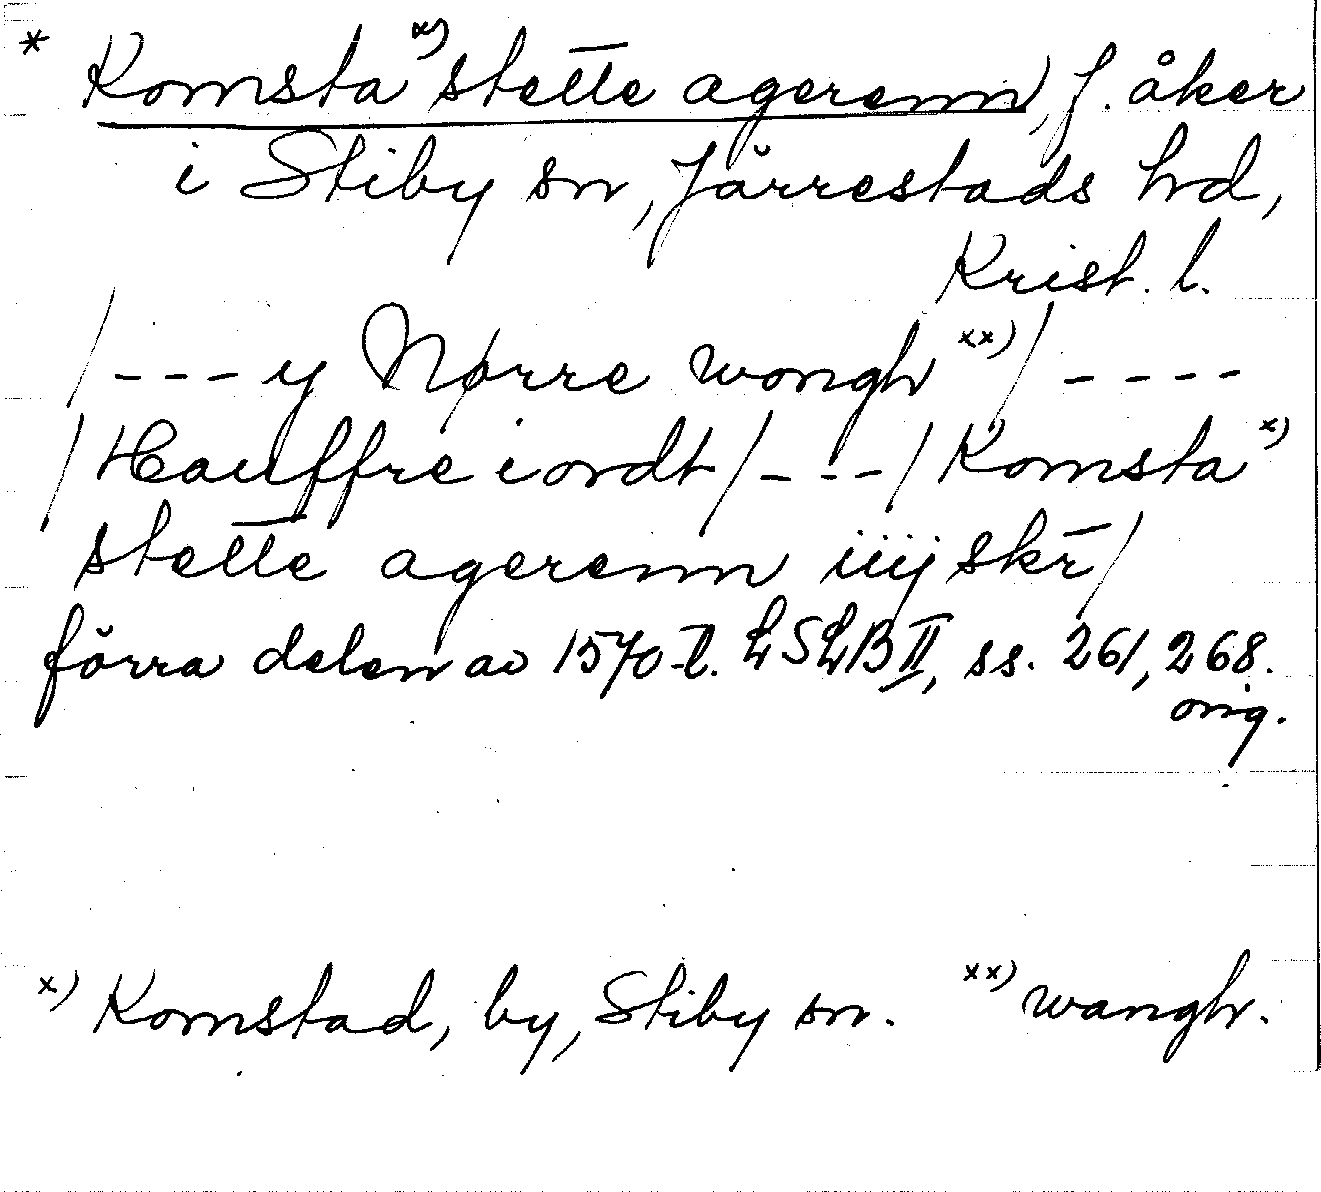 * Komsta x) stette agerenn, f. åker
i Stiby sn, Järrestads hd,
Krist. l.
/ - - - y Nørre wongh xx) / - - - -
/ Hauffre iordt / - - - / Komsta x)
stette agerenn iiij skr̄ /
förra delen av 1570-t. LSLB II, ss. 261, 268.
orig.
x) Komstad, by, Stiby sn. xx) wangh.